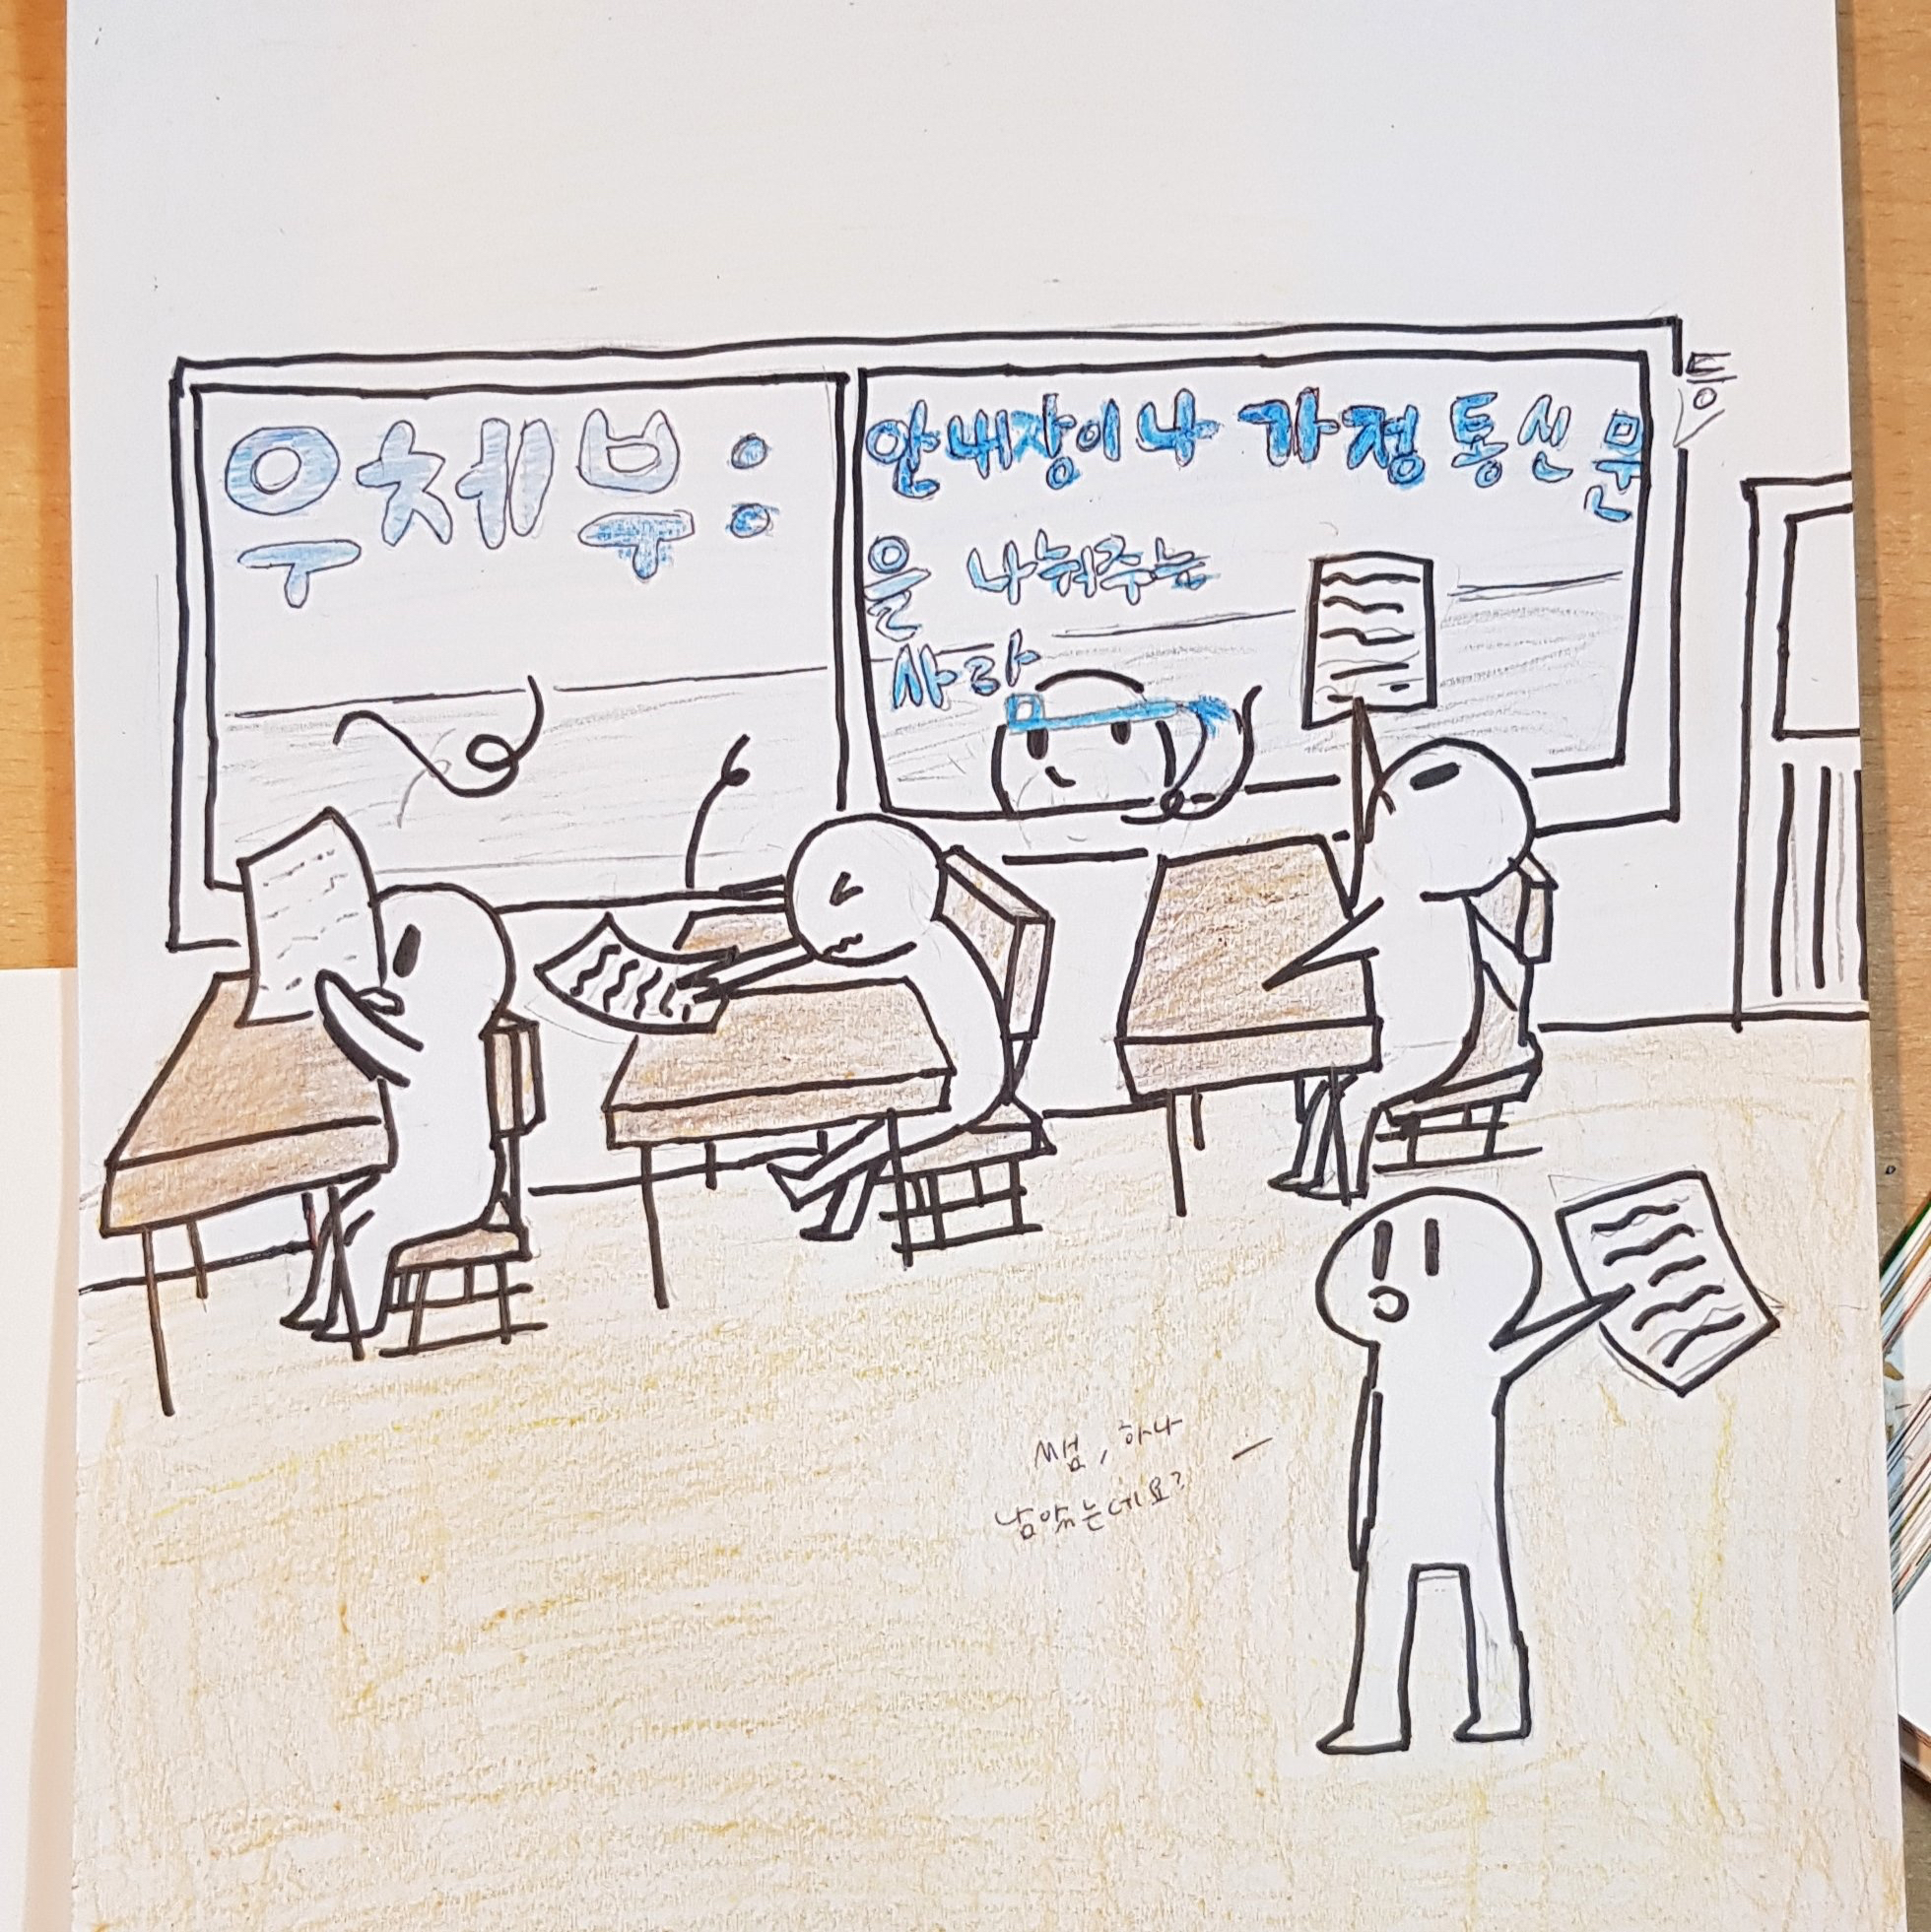 우체부:
안내장이나 가정 통신문 등
을 나눠주는
사람
쌤, 하나
남았는데요?